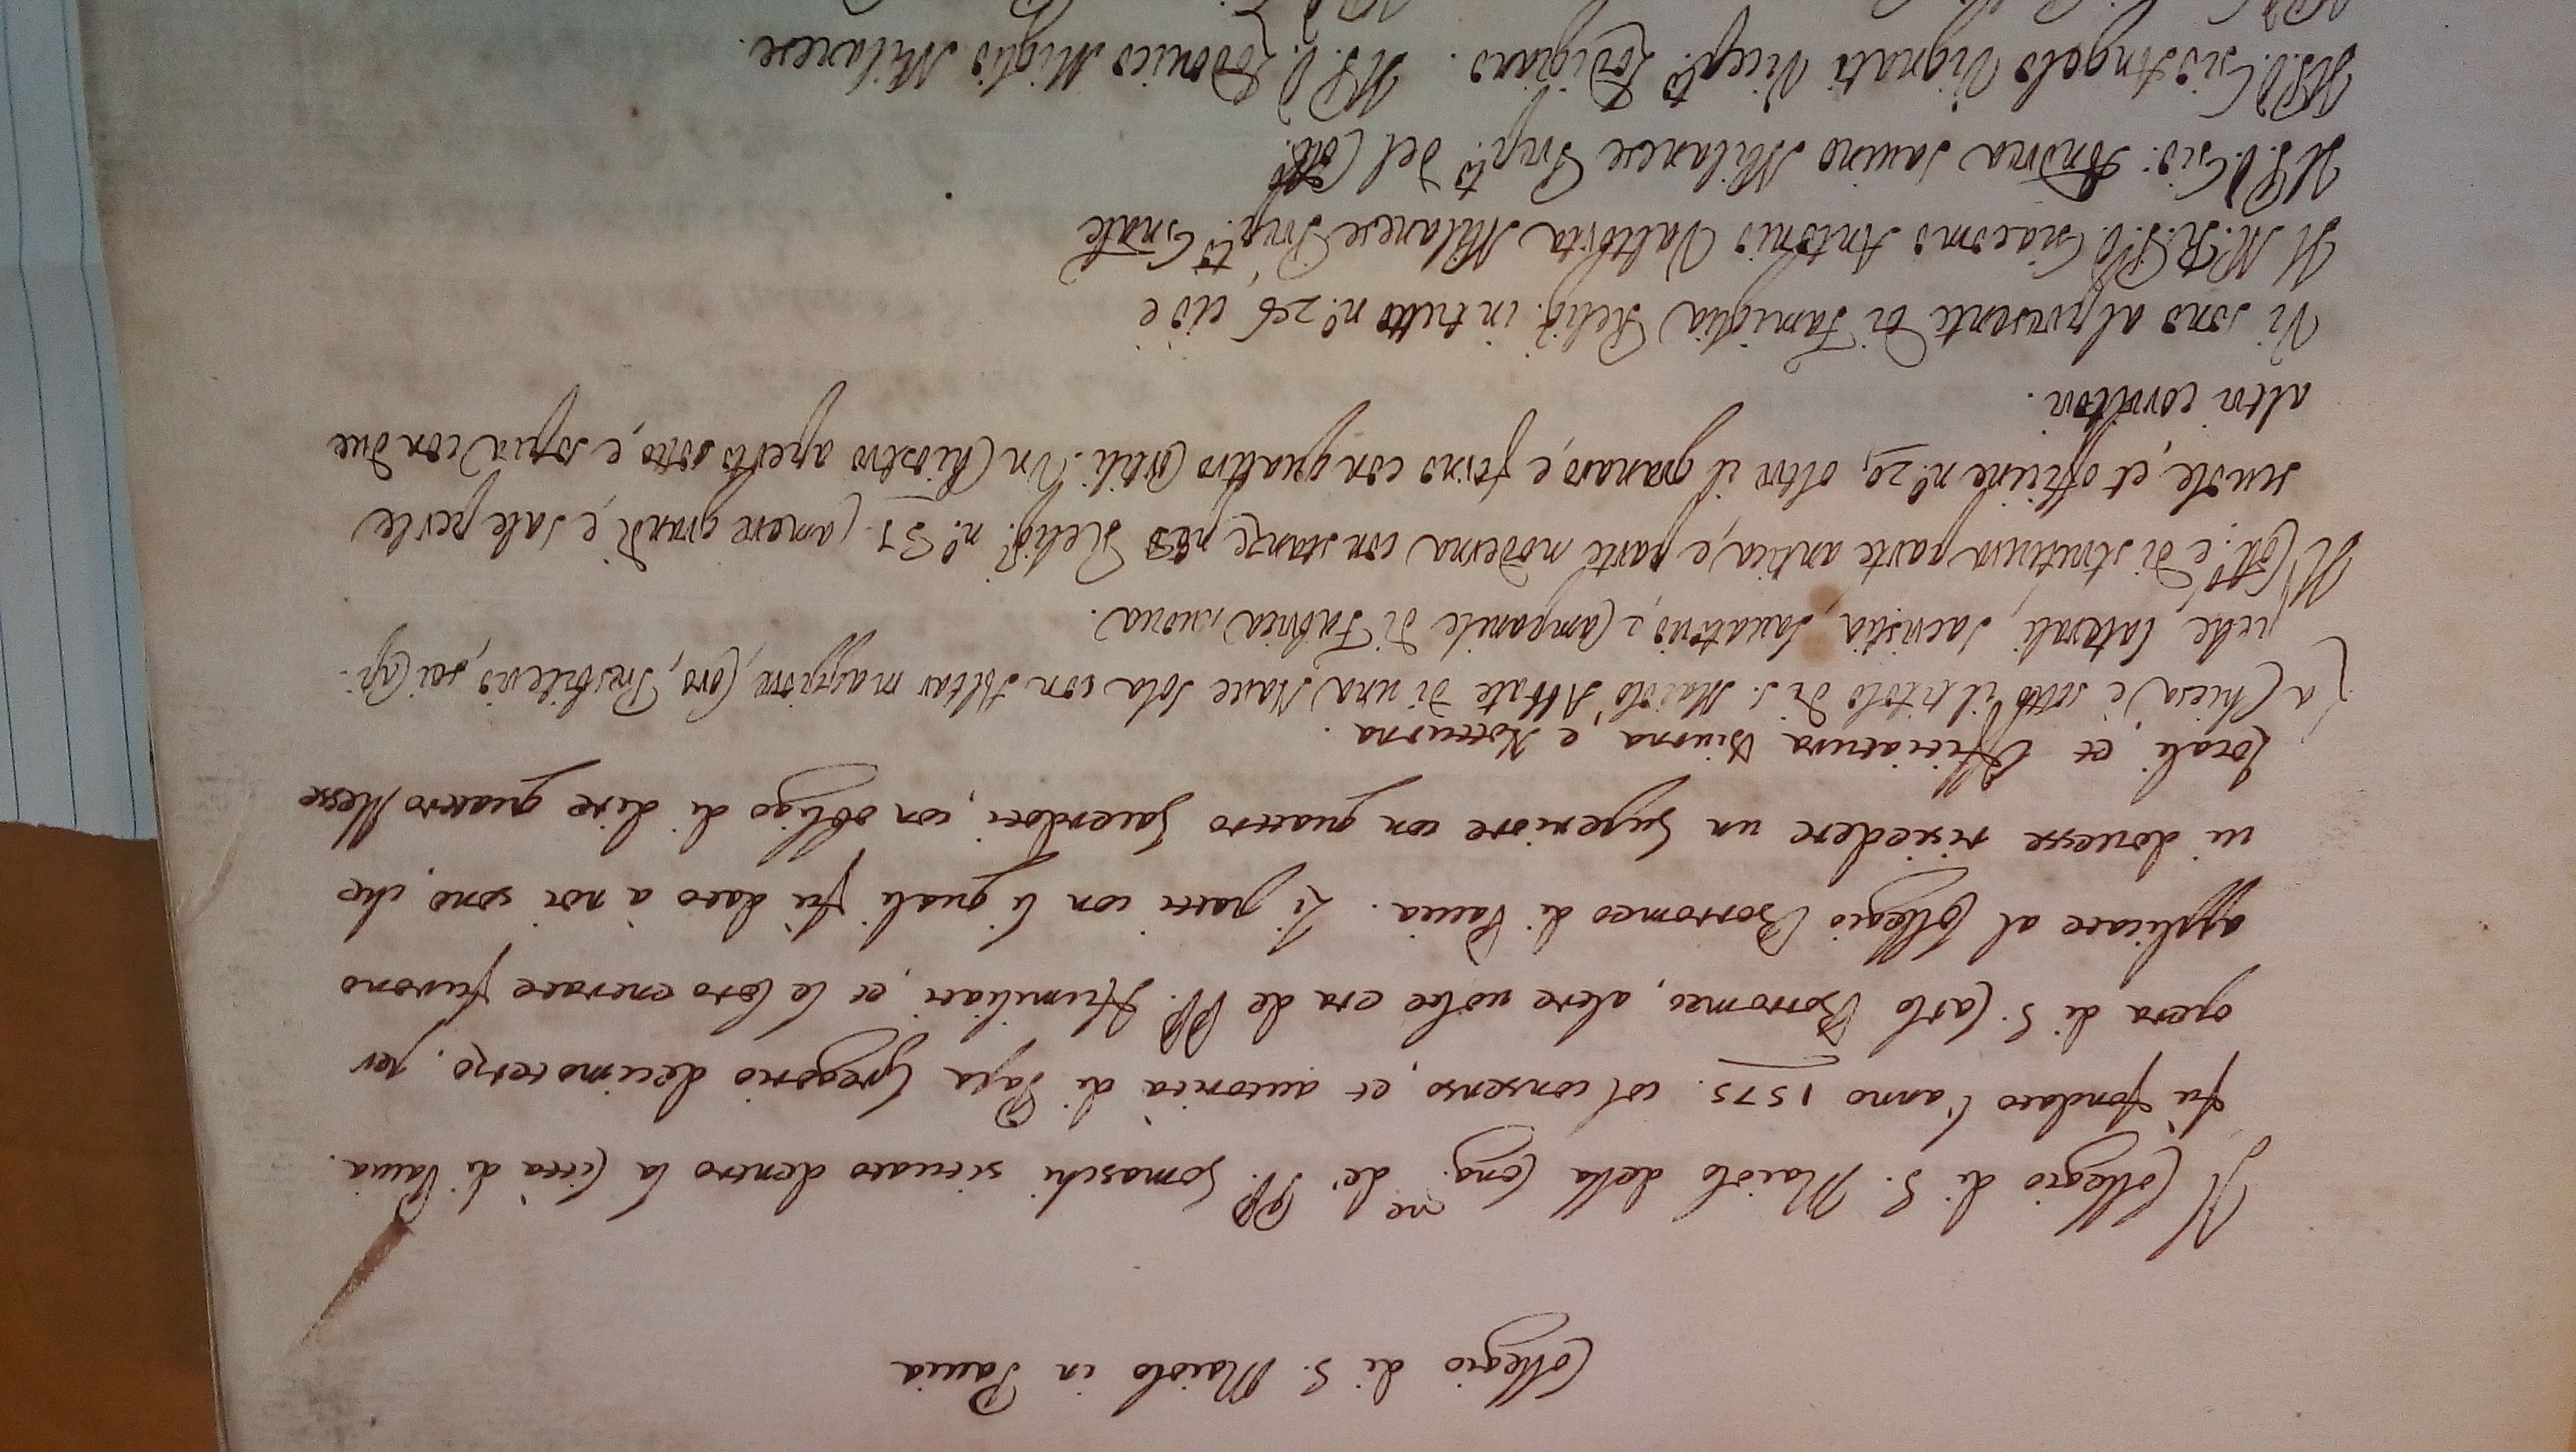 Collegio di S. Maiolo in Pauia
Il Collegio di S. Maiolo della Cong.ne de' PP. Somaschi situato dentro la Città di Pauia.
fù fondato l'anno 1575. col consenso, et autorità di Papa Gregorio decimoterzo, per
opera di S. Carlo Borromeo, altre uolte era de PP. Humiliati, et le loro entrate furono
applicate al Collegio Borromeo di Pauia. Li patti con li quali fù dato à noi sono, che
ui douesse risiedere un Superiore con quattro Sacerdoti, con obligo di dire quattro Messe
Locali, et Officiatura Diurna, e Notturna.
La Chiesa è sotto il titolo di S. Maiolo Abbate di una Naue sola con Altar maggiore, Coro, Presbiterio, sei Cap:
pelle, laterali, sacristia, lauatorio, e Campanile di Fabrica nuoua.
Il Coll.o è di struttura parte antica, e parte moderna con stanze per Relig.i n.o 31. Camere grandi, e sale per le
scuole, et officine n.o 29, oltre il granaro, e forno con quattro Cortili. Un Chiostro aperto sotto, e sopra con due
altri corritori.
Vi sono al presente di Famiglia Relig.i in tutto n.o 26 cioè
Il M.R.P.D. Giacomo Antonio Valtorta Milanese Prep.to Gn̄ale
Il P.D. Gio: Andrea Milanese Prep.to del Coll.o
Il P.D. Gio Angelo Vignati Vicep.to Lodigiano. Il P.D. Lodouico Miglio Milanese.